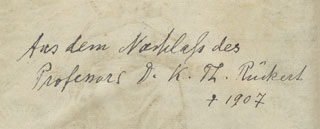 Aus dem Nachlaß des
Professors D. K. Th. Rückert
† 1907